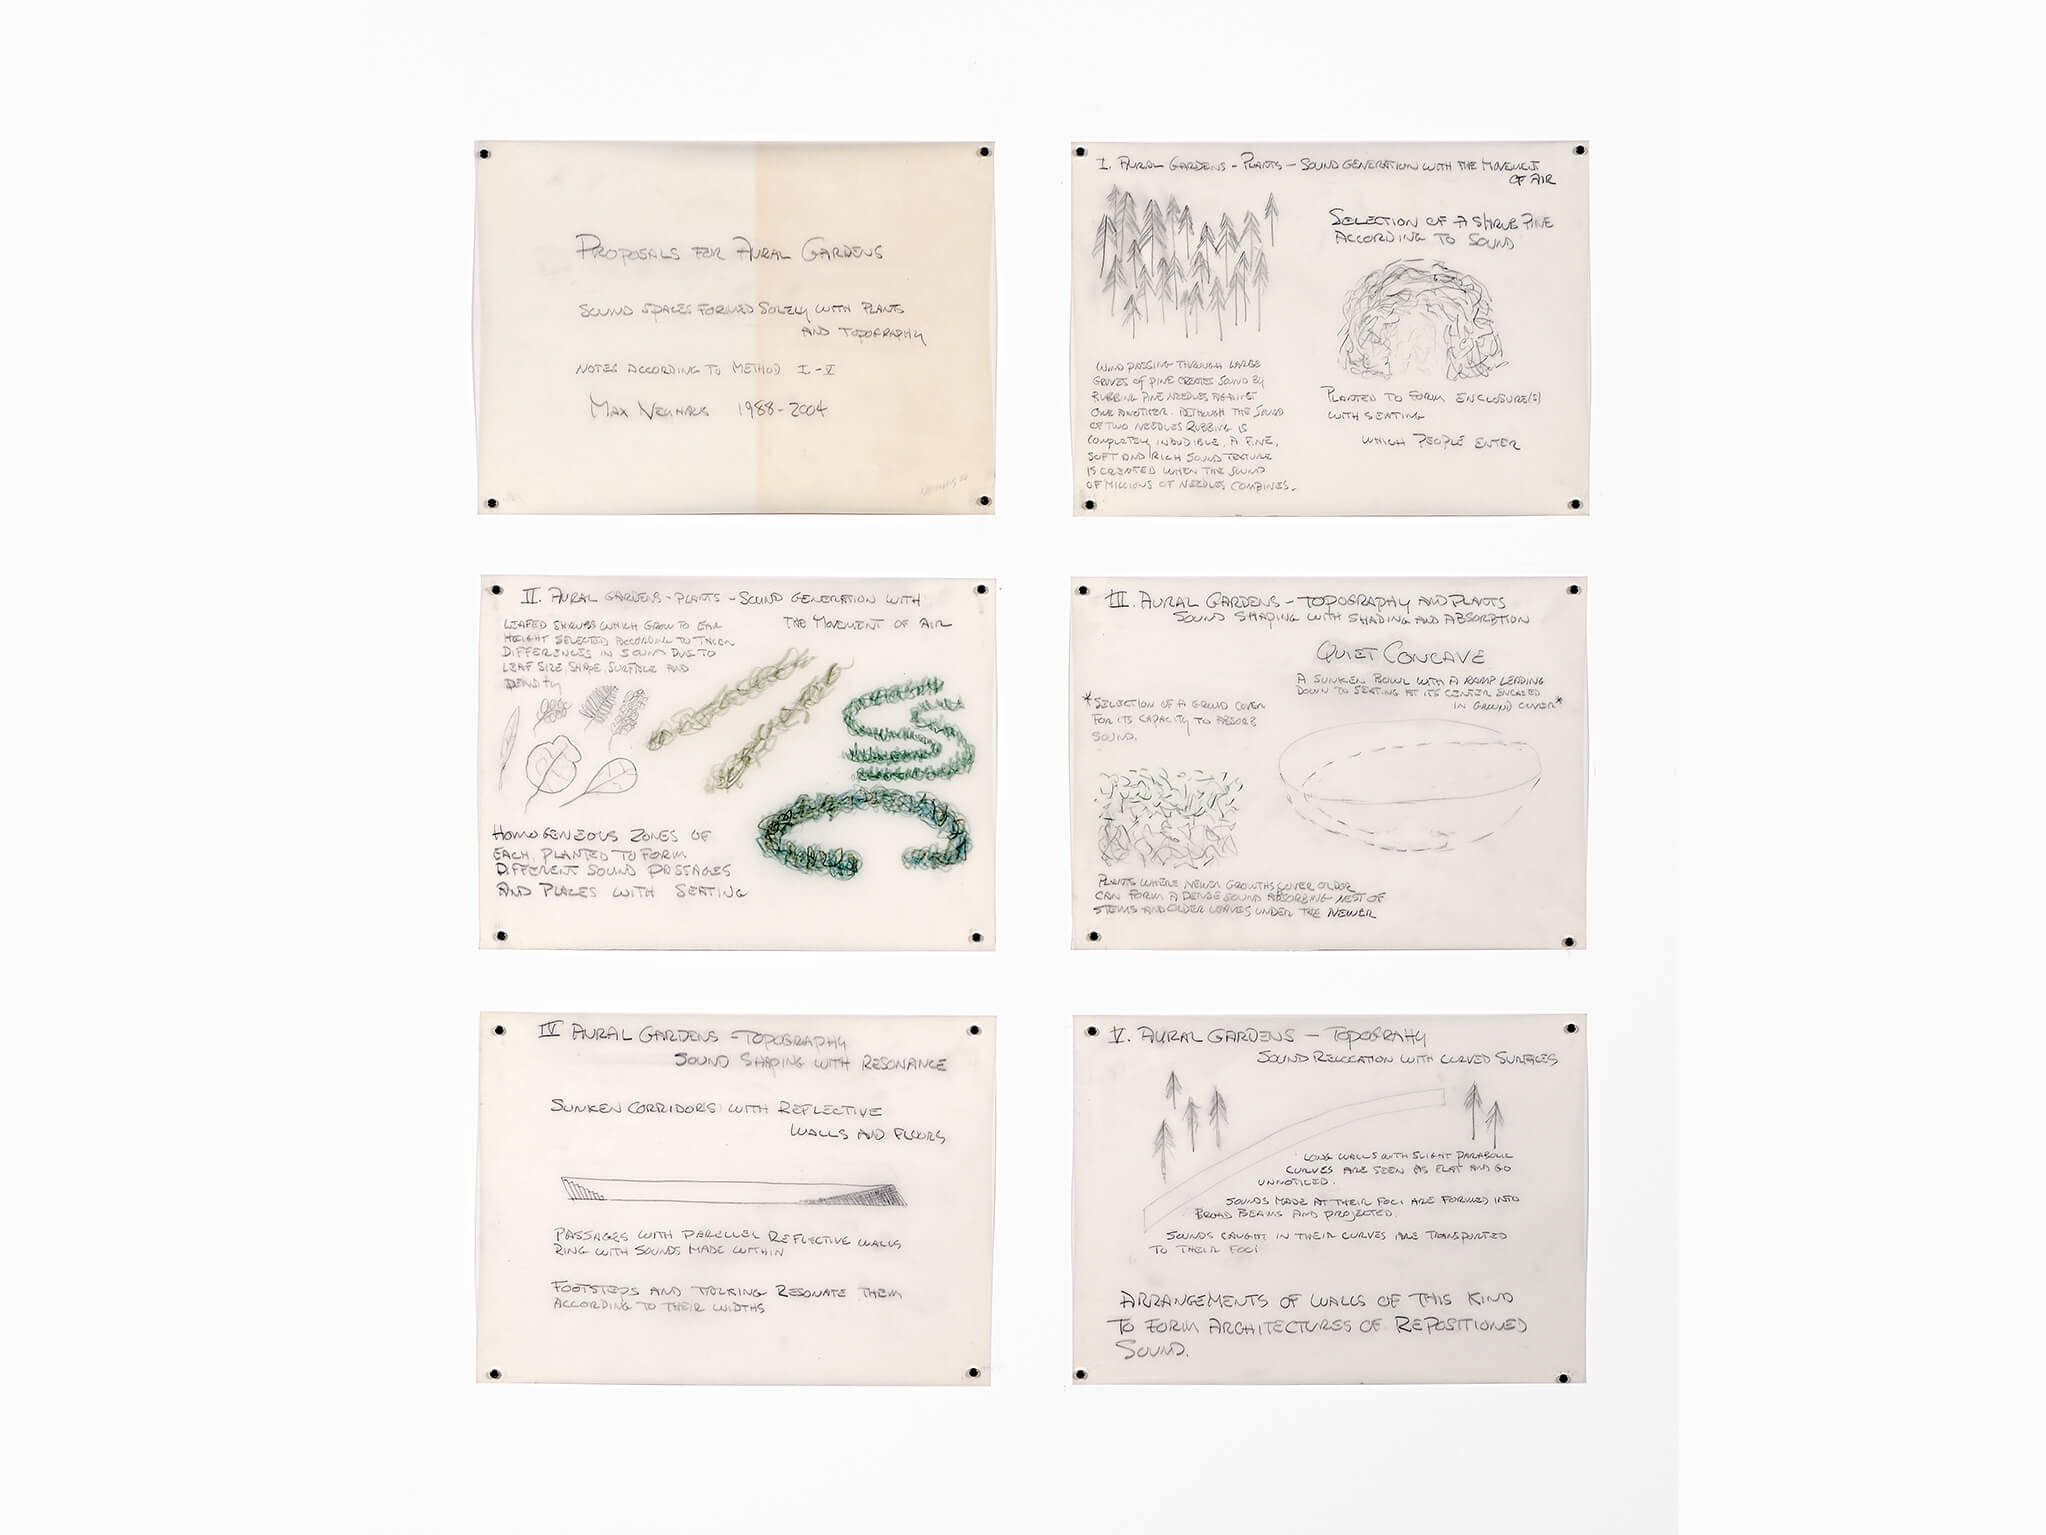 PROPOSALS FOR AURAL GARDENS
SOUND SPACES FORMED SOLELY WITH PLANTS
AND TOPOGRAPHY
NOTES ACCORDING TO METHOD I - V
MAX NEUHAUS 1988-2004
I. AURAL GARDENS - PLANTS - SOUND GENERATION WITH THE MOVEMENT
OF AIR
SELECTION OF A SHRUB PINE
ACCORDING TO SOUND
WIND PASSING THROUGH LARGE
GROVES OF PINE CREATES SOUND BY
RUBBING PINE NEEDLES AGAINST
ONE ANOTHER. ALTHOUGH THE SOUND
OF TWO NEEDLES RUBBING IS
COMPLETELY INAUDIBLE, A FINE,
SOFT AND RICH SOUND TEXTURE
IS CREATED WHEN THE SOUND
OF MILLIONS OF NEEDLES COMBINES.
PLANTED TO FORM ENCLOSURE(S)
WITH SEATING
WHICH PEOPLE ENTER
II. AURAL GARDENS - PLANTS - SOUND GENERATION WITH
THE MOVEMENT OF AIR
LEAFED SHRUBS WHICH GROW TO EAR
HEIGHT SELECTED ACCORDING TO THEIR
DIFFERENCES IN SOUND DUE TO
LEAF SIZE, SHAPE, SURFACE AND
DENSITY
HOMOGENEOUS ZONES OF
EACH, PLANTED TO FORM
DIFFERENT SOUND PASSAGES
AND PLACES WITH SEATING
III. AURAL GARDENS - TOPOGRAPHY AND PLANTS
SOUND SHAPING WITH SHADING AND ABSORBTION
QUIET CONCAVE
A SUNKEN BOWL WITH A RAMP LEADING
DOWN TO SEATING AT ITS CENTER ENCASED
IN GROUND COVER*
*SELECTION OF A GROUND COVER
FOR ITS CAPACITY TO ABSORB
SOUND.
PLANTS WHERE NEWER GROWTHS COVER OLDER
CAN FORM A DENSE SOUND ABSORBING NEST OF
STEMS AND OLDER LEAVES UNDER THE NEWER
IV AURAL GARDENS - TOPOGRAPHY
SOUND SHAPING WITH RESONANCE
SUNKEN CORRIDORS WITH REFLECTIVE
WALLS AND FLOORS
PASSAGES WITH PARELLEL REFLECTIVE WALLS
RING WITH SOUNDS MADE WITHIN
FOOTSTEPS AND TALKING RESONATE THEM
ACCORDING TO THEIR WIDTHS
V. AURAL GARDENS - TOPOGRAHY
SOUND RELOCATION WITH CURVED SURFACES
LONG WALLS WITH SLIGHT PARABOLIC
CURVES ARE SEEN AS FLAT AND GO
UNNOTICED.
SOUNDS MADE AT THEIR FOCI ARE FORMED INTO
BROAD BEAMS AND PROJECTED.
SOUNDS CAUGHT IN THEIR CURVES ARE TRANSPORTED
TO THEIR FOCI
ARRANGEMENTS OF WALLS OF THIS KIND
TO FORM ARCHITECTURES OF REPOSITIONED
SOUND.